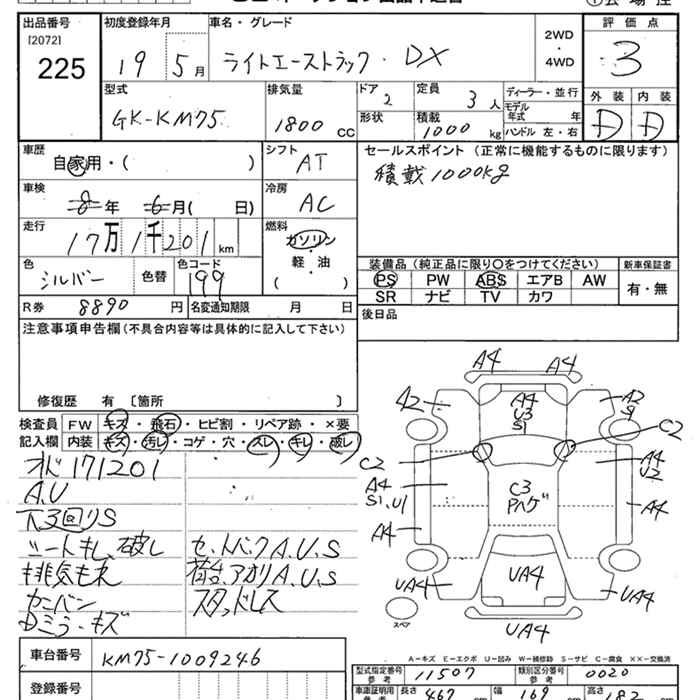 出品番号 初度登録年月 車名・グレード 2WD・4WD 評価点
[2072]
225 19 5月 ライトエーストラック・DX 3
型式 排気量 ドア 定員 ディーラー・並行 外装 内装
GK-KM75 1800cc 2 3人 モデル年式 年 D D
形状 積載 1000kg ハンドル 左・右
車歴 シフト セールスポイント(正常に機能するものに限ります)
自家用・( ) AT 積載1000kg
車検 冷房
8年 6月( 日) AC
走行 燃料
17万1千201km ガソリン・軽・油( )
色 色替 色コード 装備品(純正品に限り○をつけてください) 新車保証書
シルバー 199 PS PW ABS エアB AW 有・無
SR ナビ TV カワ
R券 8890円 名変通知期限 月 日 後日品
注意事項申告欄(不具合内容等は具体的に記入して下さい)
修復歴 有〔箇所 〕
検査員 FW キズ・飛石・ヒビ割・リペア跡・×要
記入欄 内装 キズ・汚レ・コゲ・穴・スレ・キレ・破レ
オド171201
A.U
下3回りS
シートもし、破し セットバックA.U.S
排気もれ 荷台、アオリA.U.S
カンバン スタッドレス
Dミラーキズ
A4 A4
A2 A4 U3 S1 A2 S
C2 C2
A4 S1.U1 C3 Pハゲ A4 U2
A4 A4
UA4 UA4 UA4
UA4
スペア
A-キズ E-エクボ U-凹み W-補修跡 S-サビ C-腐食 ××-交換済
車台番号 KM75-1009246 型式指定番号 11507 類別区分番号 0020
登録番号 車庫証明用 長さ 467 幅 169 高さ 182